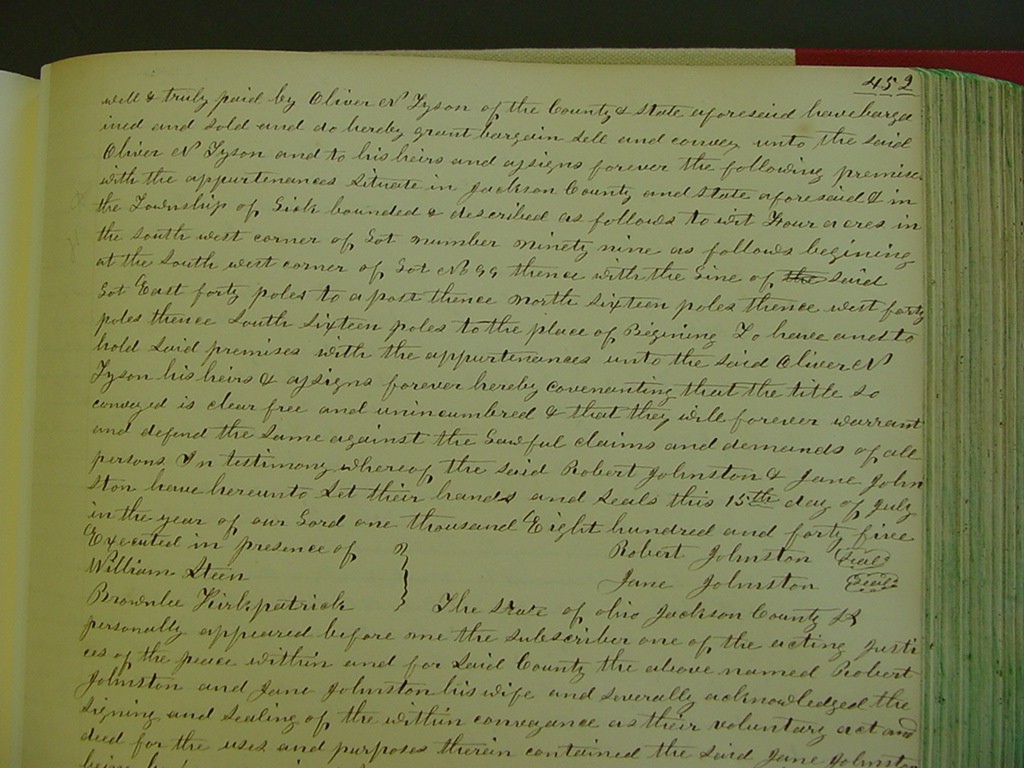 452
will & truly paid by Oliver N Tyson of the County & State aforesaid have barga
ined and sold and do hereby grant bargain sell and convey unto the said
Oliver N Tyson and to his heirs and assigns forever the following premises
with the appurtenances situate in Jackson County and State aforesaid & in
the Township of Lick bounded & described as follows to wit Four acres in
the south west corner of Lot number ninety nine as follows begining
at the South west corner of Lot No 99 thence with the Line of the said
Lot East forty poles to a post thence north sixteen poles thence west forty
poles thence South sixteen poles to the place of Begining To have and to
hold said premises with the appurtenances unto the said Oliver N
Tyson his heirs & assigns forever hereby covenanting that the title so
conveyed is clear free and unincumbered & that they will forever warrant
and defend the same against the Lawful claims and demands of all
persons In testimony whereof the said Robert Johnston & Jane John
ston have hereunto set their hands and seals this 15th day of July
in the year of our Lord one thousand Eight hundred and forty five
Executed in presence of Robert Johnston Seal
William Steen Jane Johnston Seal
Brownlee Kirkpatrick The State of ohio Jackson County SS
personally appeared before me the subscriber one of the acting Justi
ces of the peace within and for said County the above named Robert
Johnston and Jane Johnston his wife and severally acknowledged the
signing and sealing of the within conveyance as their voluntary act and
deed for the uses and purposes therein contained the said Jane Johnston